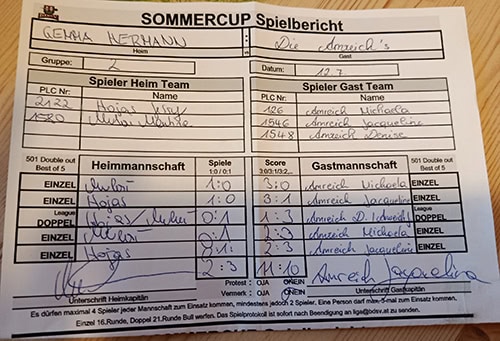 SOMMERCUP Spielbericht
GEMMA HERMANN : Die Amreich's
Heim Gast
Gruppe: 2 Datum: 12.7.
Spieler Heim Team Spieler Gast Team
PLC Nr. Name PLC Nr. Name
2122 Hojas 126 Amreich Michaela
1520 1546 Amreich Jacqueline
1548 Amreich Denise
501 Double out Best of 5 Heimmannschaft Spiele 1:0 / 0:1 Score 3:0/3:1/3:2... Gastmannschaft 501 Double out Best of 5
EINZEL 1:0 3:0 Amreich Michaela EINZEL
EINZEL Hojas 1:0 3:1 Amreich Jacqueline EINZEL
League DOPPEL Hojas 0:1 1:3 Amreich D. League DOPPEL
EINZEL 0:1 2:3 Amreich Michaela EINZEL
EINZEL Hojas 0:1 2:3 Amreich Jacqueline EINZEL
2:3 11:10
Amreich Jacqueline
Protest : OJA ONEIN
Unterschrift Heimkapitän Vermerk : OJA ONEIN Unterschrift Gastkapitän
Es dürfen maximal 4 Spieler jeder Mannschaft zum Einsatz kommen, mindestens jedoch 2 Spieler. Eine Person darf max. 3-mal zum Einsatz kommen.
Einzel 16.Runde, Doppel 21.Runde Bull werfen. Das Spielprotokoll ist sofort nach Beendigung an liga@bdsv.at zu senden.